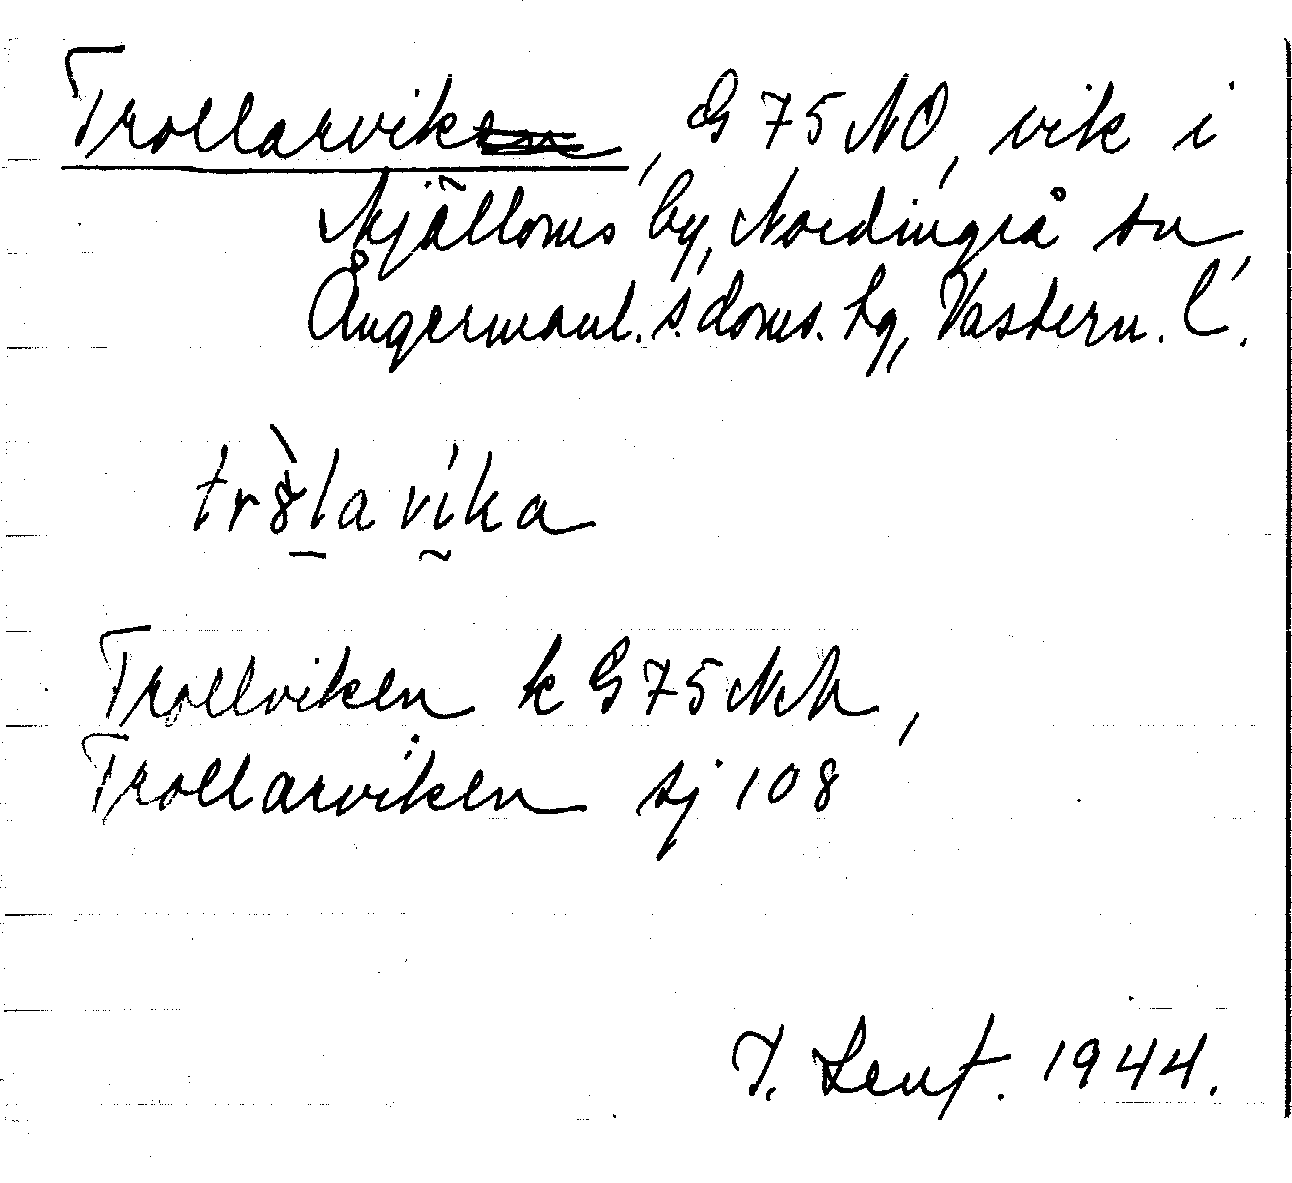 Trollarvik, G 75 NO, vik i
Mjälloms by, Nordingrå sn,
Ångermanl. s. doms. tg, Västern. l.
tr8̀la víka
Trollviken k G 75 NM,
Trollarviken sj 108
1944.